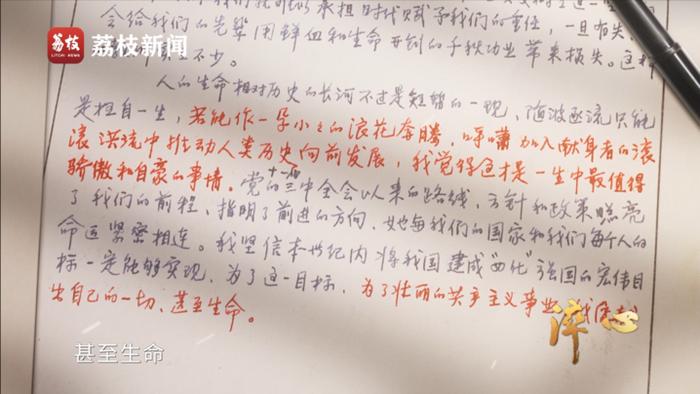 荔枝
LITCHI NEWS
荔枝新闻
会给我们的先辈用鲜血和生命开创的千秋功业带来损失。这样
不少。
人的生命相对历史的长河不过是短暂的一现，随波逐流只能
是枉自一生，若能作一朵小小的浪花奔腾，呼啸加入献身者的滚
滚洪流中推动人类历史向前发展，我觉得这才是一生中最值得
骄傲和自豪的事情。党的十一届三中全会以来的路线、方针和政策照亮
了我们的前程，指明了前进的方向，她与我们的国家和我们每个人的
命运紧密相连。我坚信本世纪内将我国建成“四化”强国的宏伟目
标一定能够实现，为了这一目标，为了壮丽的共产主义事业，我愿
出自己的一切、甚至生命。
淬心
甚至生命